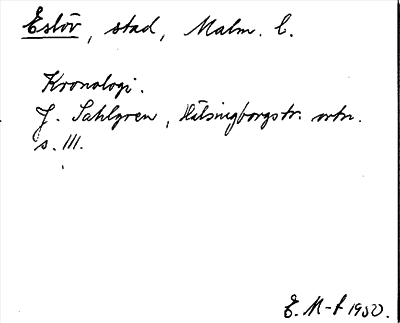 Eslöv, stad, Malm. l.
Kronologi.
J. Sahlgren, Hälsingborgstr. ortn.
s. 111.
E. M-f 1950.